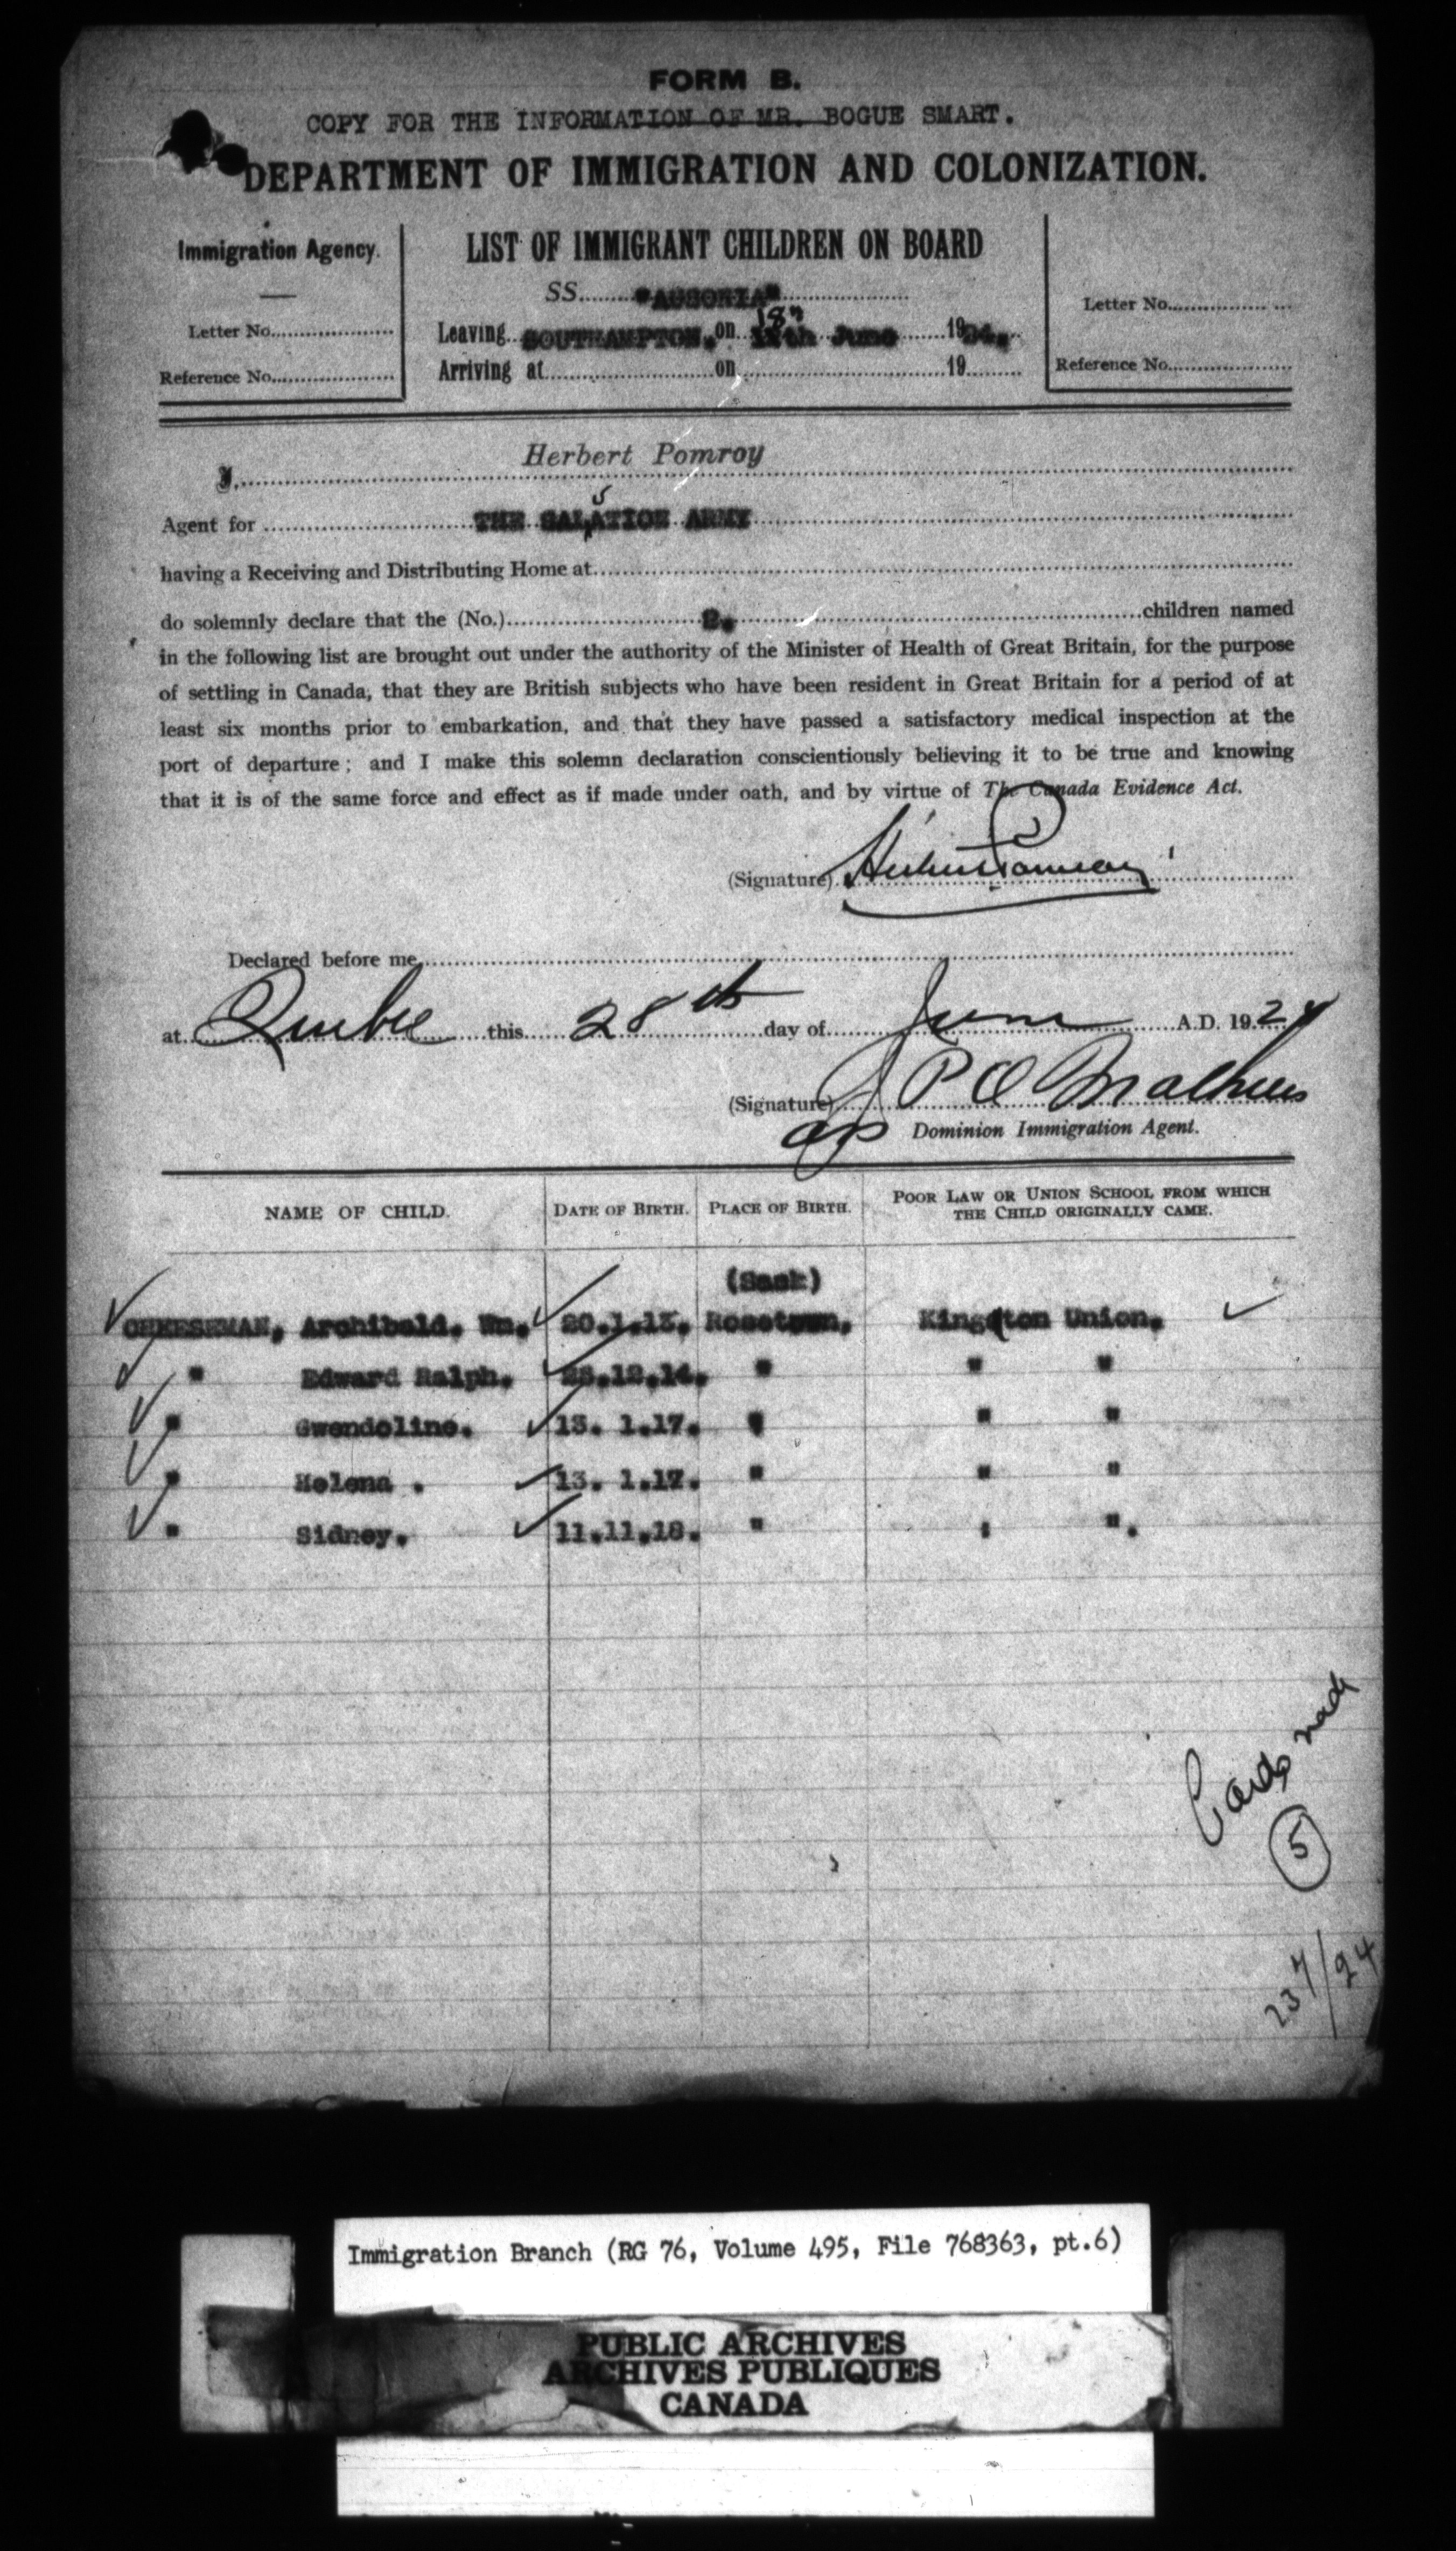 FORM B.
COPY FOR THE INFORMATION OF MR. BOGUE SMART.
DEPARTMENT OF IMMIGRATION AND COLONIZATION.
Immigration Agency.
Letter No.
Reference No.
LIST OF IMMIGRANT CHILDREN ON BOARD
SS. "AUSONIA"
Leaving SOUTHAMPTON, on 18th June 1924.
Arriving at on 19
Letter No.
Reference No.
I, Herbert Pomroy
Agent for THE SALVATION ARMY
having a Receiving and Distributing Home at
do solemnly declare that the (No.) children named
in the following list are brought out under the authority of the Minister of Health of Great Britain, for the purpose
of settling in Canada, that they are British subjects who have been resident in Great Britain for a period of at
least six months prior to embarkation, and that they have passed a satisfactory medical inspection at the
port of departure; and I make this solemn declaration conscientiously believing it to be true and knowing
that it is of the same force and effect as if made under oath, and by virtue of The Canada Evidence Act.
(Signature) Herbert Pomroy
Declared before me
at Quebec this 28th day of June A.D. 1924
(Signature) J P O
Dominion Immigration Agent.
NAME OF CHILD. DATE OF BIRTH. PLACE OF BIRTH. POOR LAW OR UNION SCHOOL FROM WHICH
THE CHILD ORIGINALLY CAME.
(Sask)
CHEESEMAN, Archibald. Wm. 20.1.13. Rosetown. Kingston Union.
" Edward Ralph. 12.14. " " "
" Gwendoline. 13. 1.17. " " "
" Helena . 13. 1.17. " " "
" Sidney. 11.11.18. " " ".
Cards made
5
23 7/24
Immigration Branch (RG 76, Volume 495, File 768363, pt.6)
PUBLIC ARCHIVES
ARCHIVES PUBLIQUES
CANADA